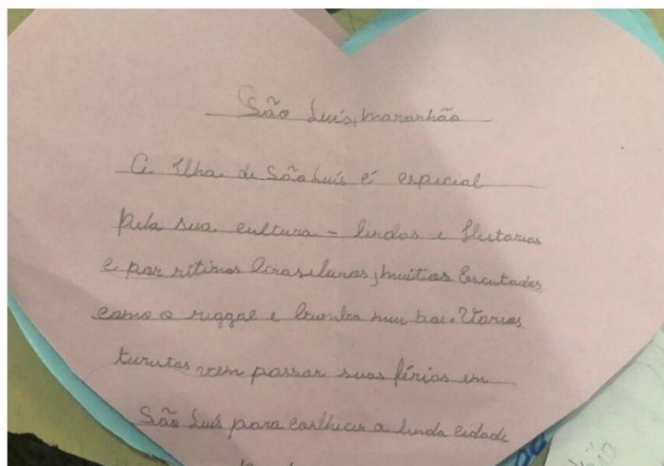 São Luís, maranhão
A Ilha de São Luís é especial
pela sua cultura - lindas e
e por rítimos brasilanos, muitos Escutados
como o reggae e bumba meu boi. Varios
turistas vem passar suas férias em
São Luís para conhecer a linda cidade